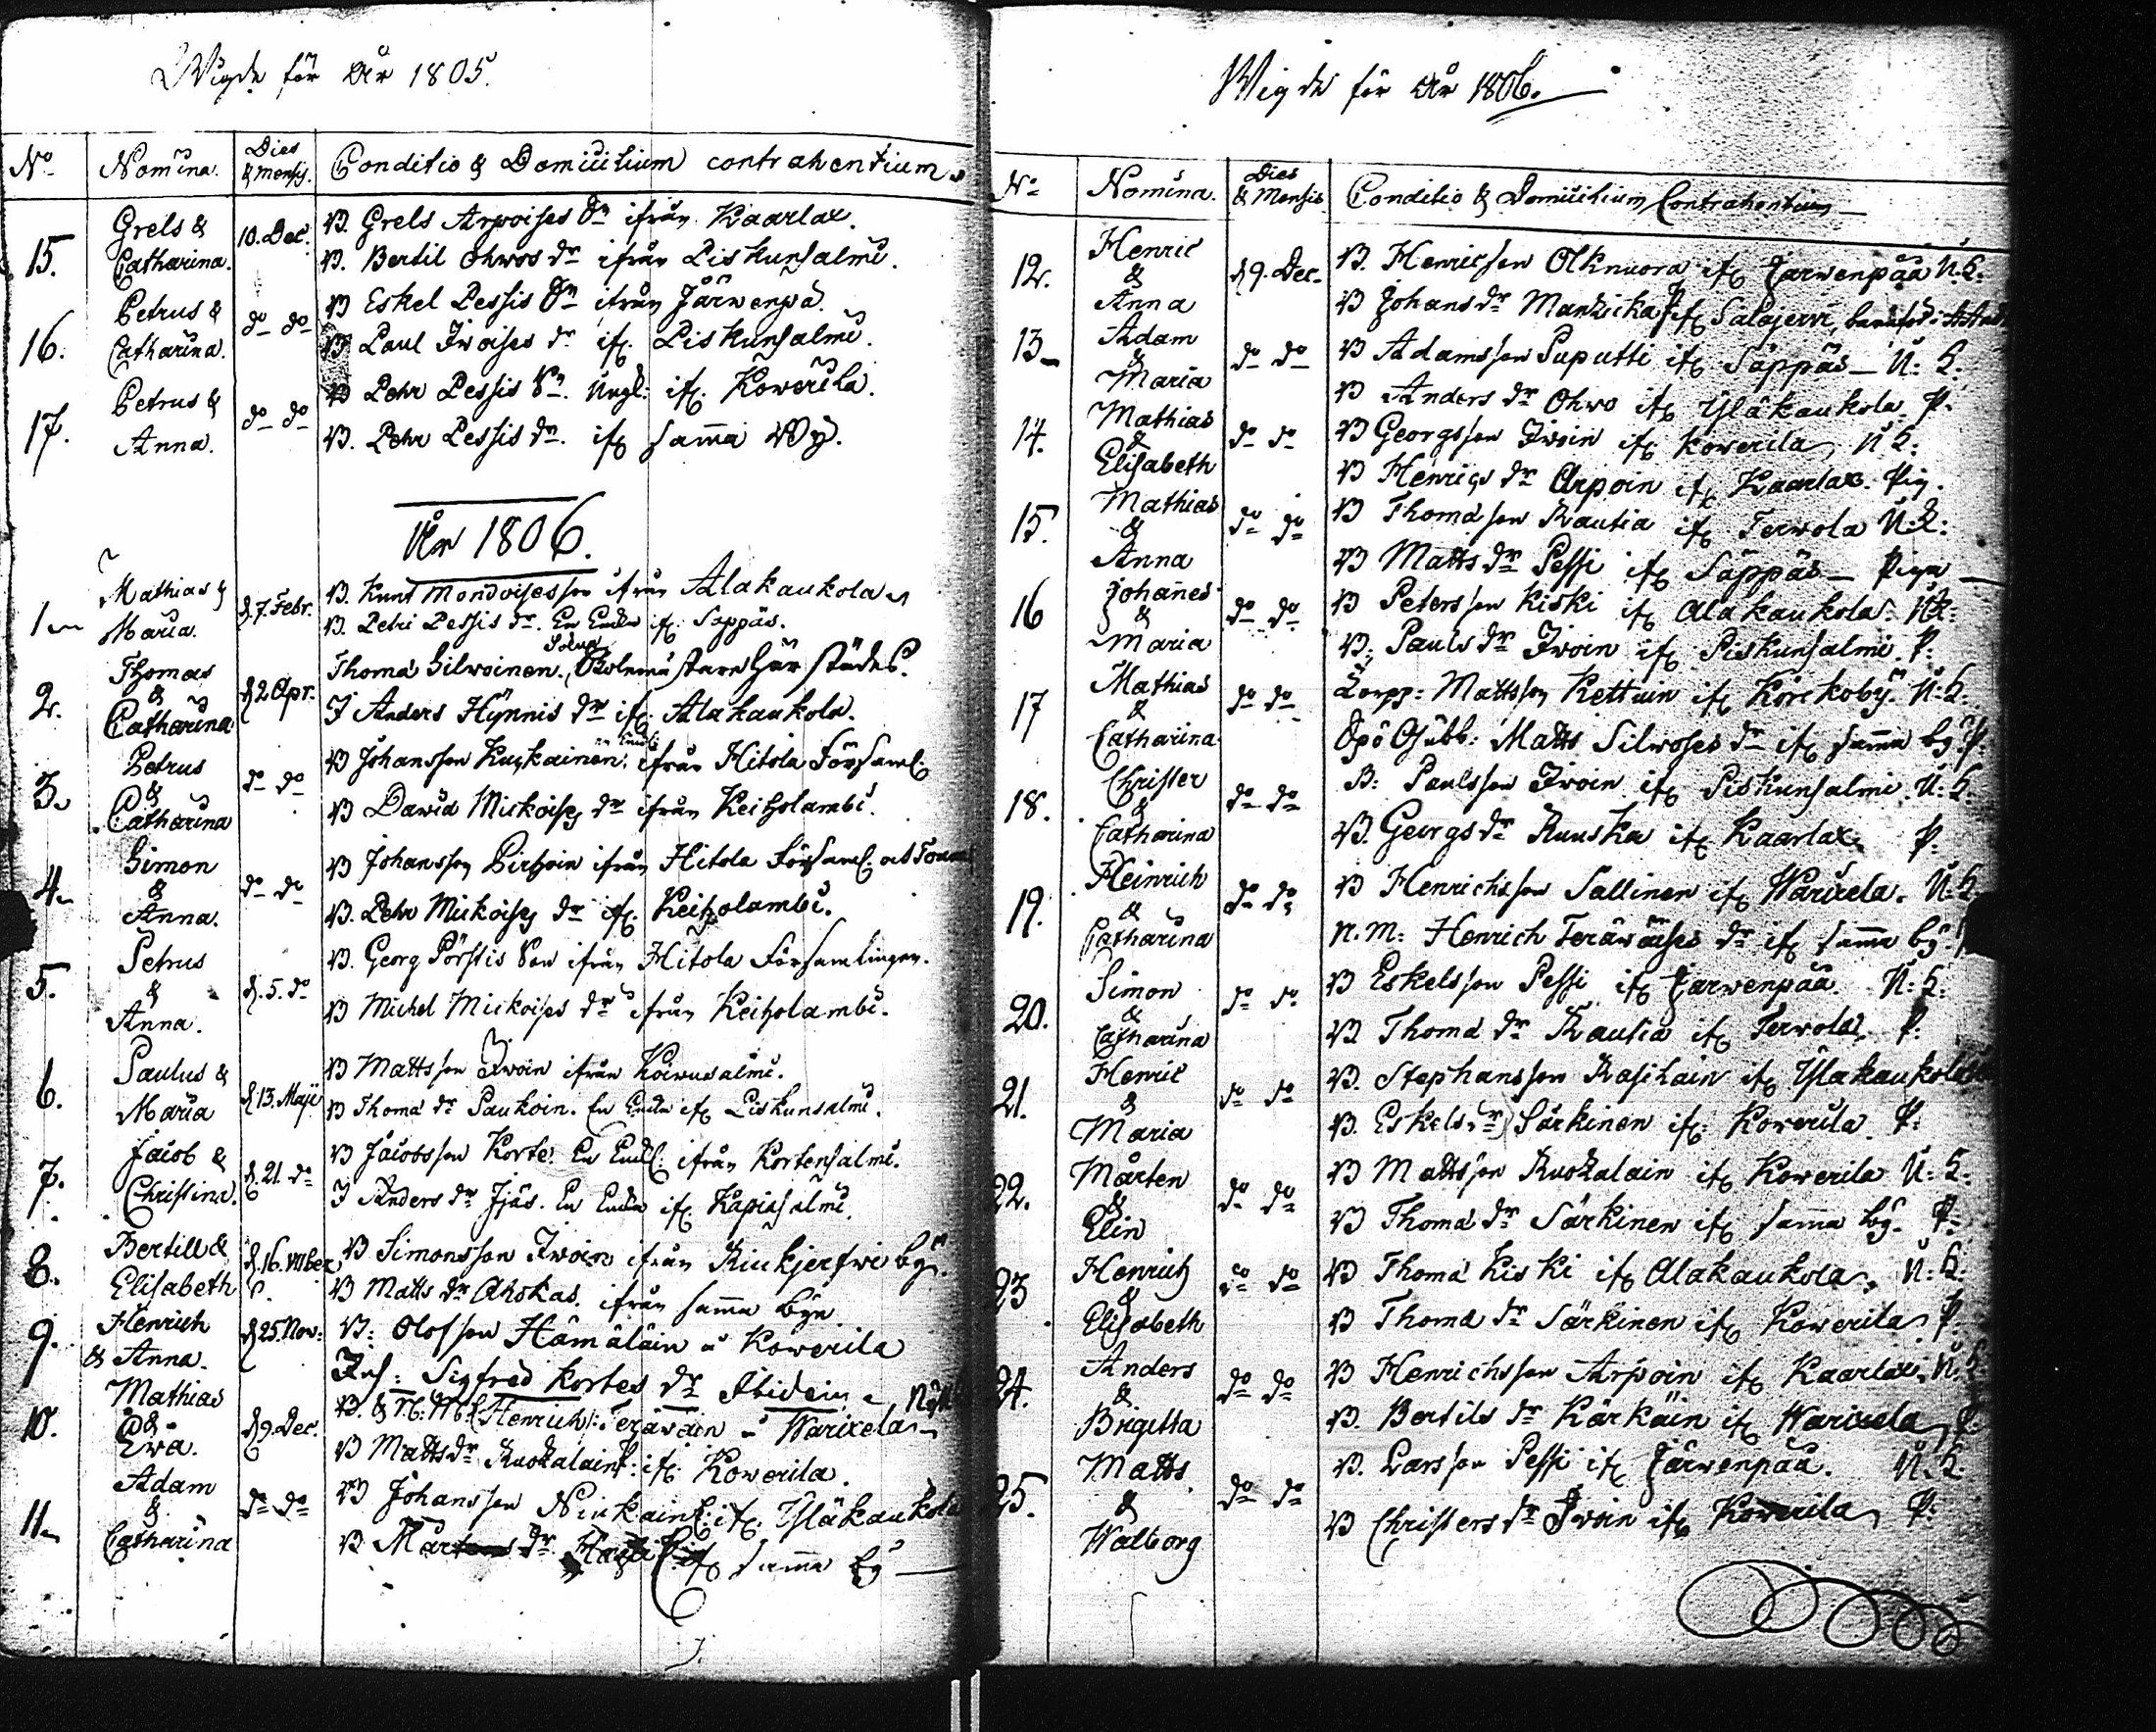 Wigde för År 1805.
No Nomina. Dies & Mensis. Conditio & Domicilium contrahentium.
15. Grels & Catharina. 10. Dec. B. Grels Arpoises Sn ifrån Kaarlax.
B. Bertil Ohwos dr ifrån Piskunsalmi.
16. Petrus & Catharina. do do B Eskel Pessis Sn ifrån Järwenpä.
B Paul Iwoises dr if. Piskunsalmi.
17. Petrus & Anna. do do B Pehr Pessis Sn. Ungk: if. Kowerila.
B. Pehr Pessis dr. if samma By.
År 1806.
1. Mathias & Maria. d 7. Febr. B. Knut Mondoisesson ifrån Alakaukola
B. Petri Pessis dr. En Enka if. Soppäs.
2. Thomas & Catharina d 2 Apr. Thoma Silwoinen, Skolemästare här städes.
I Anders Hynnis dr if. Alakaukola.
3. Petrus & Catharina do do B Johansson Kuskainen, ifrån Hitola Församl:
B David Mickoises dr ifrån Keiholambi.
4. Simon & Anna. do do B Johansson Pirhoin ifrån Hitola Församl.
B. Pehr Mickoises dr if. Keiholambi.
5. Petrus & Anna. d. 5. do B. Georg Pörstis Son ifrån Hitola Församlingen.
B Michel Mickoises dr ifrån Keiholambi.
6. Paulus & Maria d 13. Maji B Mattsson Iwoin ifrån Koirusalmi.
B Thoma dr Paukoin. En Enka if Piskunsalmi.
7. Jacob & Christina. d. 21. do B Jacobsson Korte. En Enkl: ifrån Kortensalmi.
I Anders dr Jjäs. En Enka if. Kapiasalmi.
8. Bertill & Elisabeth d. 16. VIIIber. B Simonsson Iwoin ifrån Kiukjerfwi by.
B Matts dr Ahokas. ifrån samma byn.
9. Henrich & Anna. d 25. Nov: B: Olofsson Hämäläin Kowerila
Inh: Sigfred Kortes dr
10. Mathias & Ewa. d 9. Dec. B. & N: M: (Henrich): Teräwäin Warixela
B Matts dr Ruokalain P: if Kowerila.
11. Adam & Catharina do do B Johansson Niukain if. Yläkaukola
B Mårtens dr if samma by
Wigde för År 1806.
No Nomina. Dies & Mensis Conditio & Domicilium Contrahentium
12. Henric & Anna d 9. Dec. B. Henricsson Olknuora if Jarwenpää U. K.
B Johans dr Manzicka if Salajerwi,
13. Adam & Maria do do B Adamsson Puputti if Säppäs U: K.
B Anders dr Ohwo if Yläkaukola. P.
14. Mathias & Elisabeth do do B Georgsson Iwoin if Kowerila U K:
B Henrics dr Arpoin if Kaarlax. Pig.
15. Mathias & Anna do do B Thomasson Rautia if Terwola U: K:
B Matts dr Pessi if Säppäs Piga
16 Johannes & Maria do do B Petersson Kiski if Alakaukola. UK:
B: Pauls dr Iwoin if Piskunsalmi P:
17 Mathias & Catharina do do Torpp: Mattsson Kettuin if Körckoby. U: K.
Matts Silwoses dr if samma by P.
18. Christer & Catharina do do B: Paulsson Iwoin if Piskunsalmi. U: K.
B. Georgs dr Ruuska if Kaarlax P.
19. Heinrich & Catharina do do B Henrichsson Sallinen if Warixela. U: K
N. M: Henrich Teräwäises dr if samma by.
20. Simon & Catharina do do B Eskelsson Pessi if Jarwenpää. U: K:
B Thoma dr Rautia if Terwola P:
21. Henric & Maria do do B. Stephansson Rasikain if Yläkaukola
B. Eskels dr Särkinen if Kowerila. P:
22. Mårten & Elin do do B Mattsson Ruokalain if Kowerila U: K:
B Thoma dr Särkinen if samma by. P:
23 Henrich & Elisabeth do do B Thoma Kiski if Alakaukola, U: K:
B Thoma dr Särkinen if Kowerila P:
24. Anders & Brigitta do do B Henrichsson Arpoin if Kaarlax. U: K:
B. Bertils dr Kärkäin if Warixela P:
25. Matts & Walborg do do B. Larsson Pessi if Järwenpää. U: K:
B Christers dr Iwoin if Kowerila P: